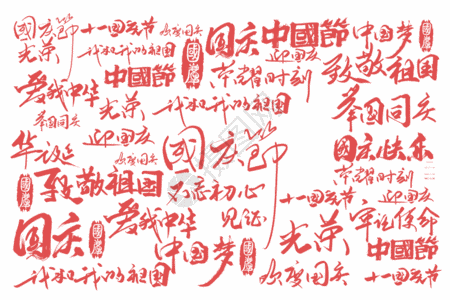 國慶節
十一国庆节
国庆
中國節
中国梦
光荣
我和我的祖国
欢度国庆
迎国庆
荣耀时刻
致敬祖国
爱我中华
中國節
光荣
我和我的祖国
举国同庆
举国同庆
迎国庆
华诞
欢度国庆
國庆節
国庆快乐
荣耀时刻
致敬祖国
不忘初心
见证
十一国庆节
迎国庆
国庆
爱我中华
中国梦
光荣
牢记使命
中國節
我和我的祖国
欢度国庆
十一国庆节